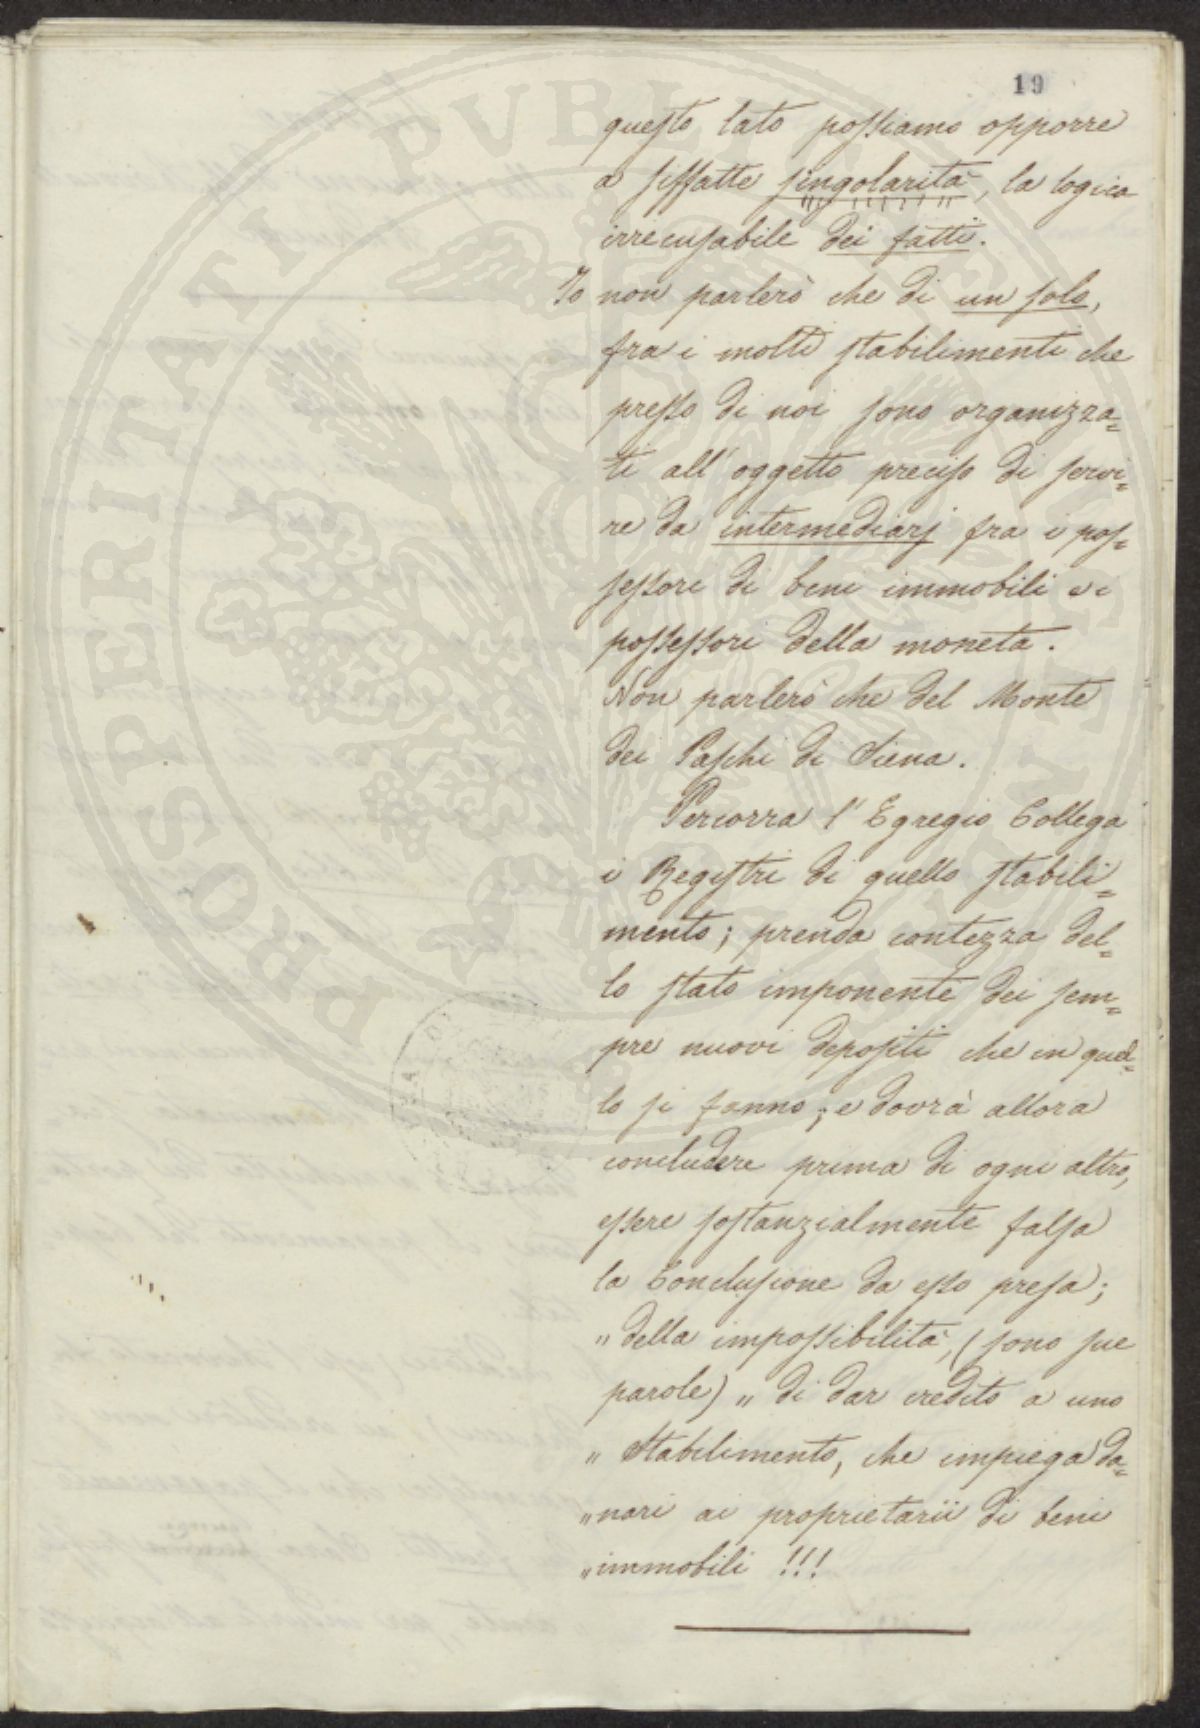 19
questo lato possiamo opporre
a siffatte singolarità, la logica
irrecusabile dei fatti.
Io non parlerò che di un solo,
fra i molti stabilimenti che
presso di noi sono organizza=
ti all'oggetto preciso di servi=
re da intermediarj fra i pos=
sessori di beni immobili e i
possessori della moneta.
Non parlerò che del Monte
dei Paschi di Siena.
Percorra l'Egregio Collega
i Registri di quello stabili=
mento; prenda contezza del=
lo stato imponente dei sem=
pre nuovi depositi che in quel=
lo si fanno; e dovrà allora
concludere prima di ogni altro,
essere sostanzialmente falsa
la Conclusione da esso presa;
„ della impossibilità, (sono sue
parole) „ di dar credito a uno
„ Stabilimento, che impiega da=
„ nari ai proprietarii di beni
„ immobili !!!
PROSPERITATI PVBLICAE